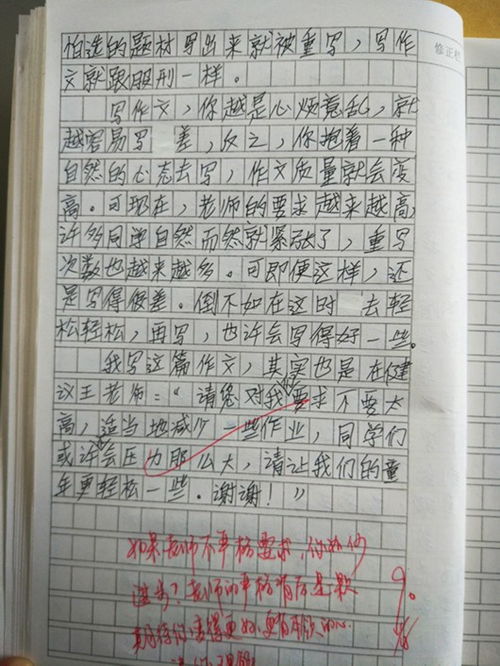 怕选的题材写出来就被重写，写作
文就跟服刑一样。
写作文，你越是心烦意乱，就
越容易写 差，反之，你抱着一种
自然的心态去写，作文质量就会变
高。可现在，老师的要求越来越高，
许多同学自然而然就紧张了，重写
次数也越来越多。可即便这样，还
是写得很差。倒不如在这时 去轻
松轻松，再写，也许会写得好一些。
我写这篇作文，其实也是在建
议王老师：“请您对我要求不要太
高，适当地减少一些作业，同学们
或许会压力那么大，请让我们的童
年更轻松一些。谢谢！”
如果老师不严格要求，你如何
进步？老师的严格背后是
期待你变得更好，更有的心
修正栏